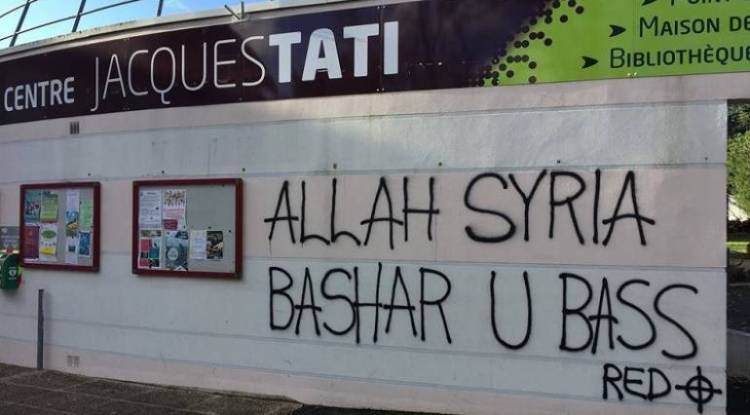 CENTRE JACQUESTATI
➤ MAISON DE
➤ BIBLIOTHÈQUE
ALLAH SYRIA
BASHAR U BASS
RED